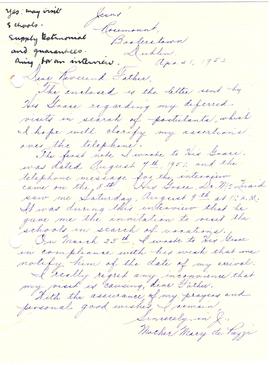 Yes: may visit
schools.
Supply testimonial
and guarantees.
Ring for an interview.
Jesus!
Rosemount
Booterstown
Dublin
Apr. 21, 1952
Dear Reverend Father,
The enclosed is the letter sent by
His Grace regarding my deferred
visits in search of postulants, which
I hope will clarify my assertions
over the telephone.
The first note I wrote to His Grace
was dated August 7th 1951 and the
telephone message for the interview
came on the 8th. His Grace, Dr. McQuaid
saw me Saturday, August 9th at 12 N.
It was during this interview that he
gave me the invitation to visit the
schools in search of vocations.
On March 25th, I wrote to His Grace
in compliance with his wish that we
notify him of the date of my arrival.
I really regret any inconvenience that
my visit is causing, dear Father.
With the assurance of my prayers and
personal good wishes, I remain
Sincerely in J.
Mother Mary de Pazzi